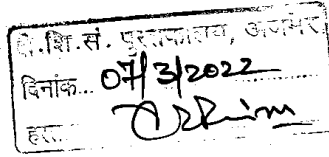 क्षे.शि.सं. पुस्तकालय, अजमेर
दिनांक... 07/3/2022
हस्ता.....